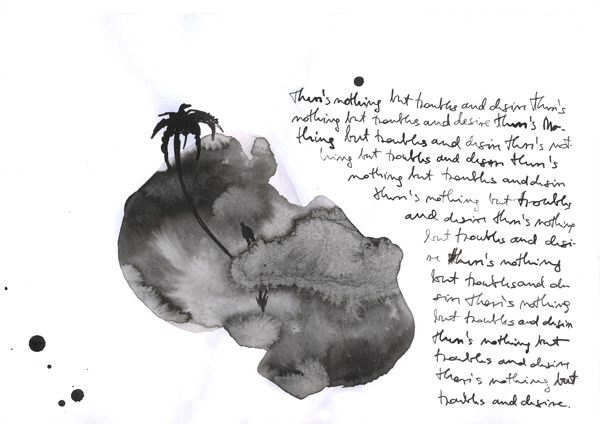 There's nothing but troubles and desire there's
nothing but troubles and desire there's no-
thing but troubles and desire there's not-
hing but troubles and desire there's
nothing but troubles and desire
there's nothing but troubles
and desire there's nothing
but troubles and desi-
re there's nothing
but troubles and de
sire there's nothing
but troubles and desire
there's nothing but
troubles and desire
there's nothing but
troubles and desire.